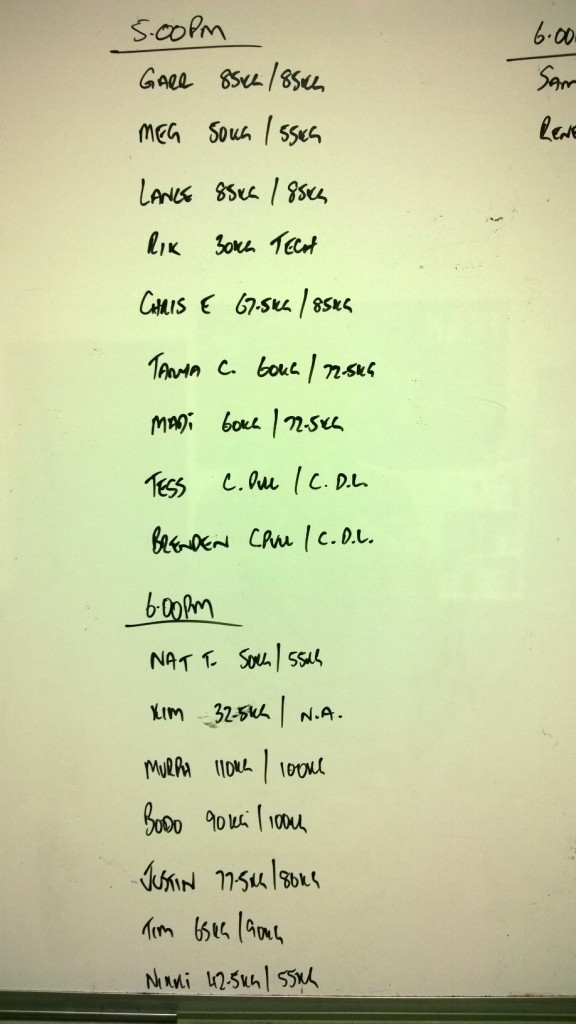 5.00PM
GARR 85KG/85KG
MEG 50KG/55KG
LANCE 85KG/85KG
RIK 30KG TECH
CHRIS E 67.5KG/85KG
TANYA C. 60KG/72.5KG
MADi 60KG/72.5KG
TESS C.Pull/C.D.L
BRENDEN CPull/C.D.L.
6.00PM
NAT T. 50KG/55KG
KIM 32.5KG/N.A.
MURPH 110KG/100KG
BODO 90KG/100KG
JUSTIN 77.5KG/80KG
Tim 65KG/90KG
NikKi 42.5KG/55KG
6.00
SAM
RENE